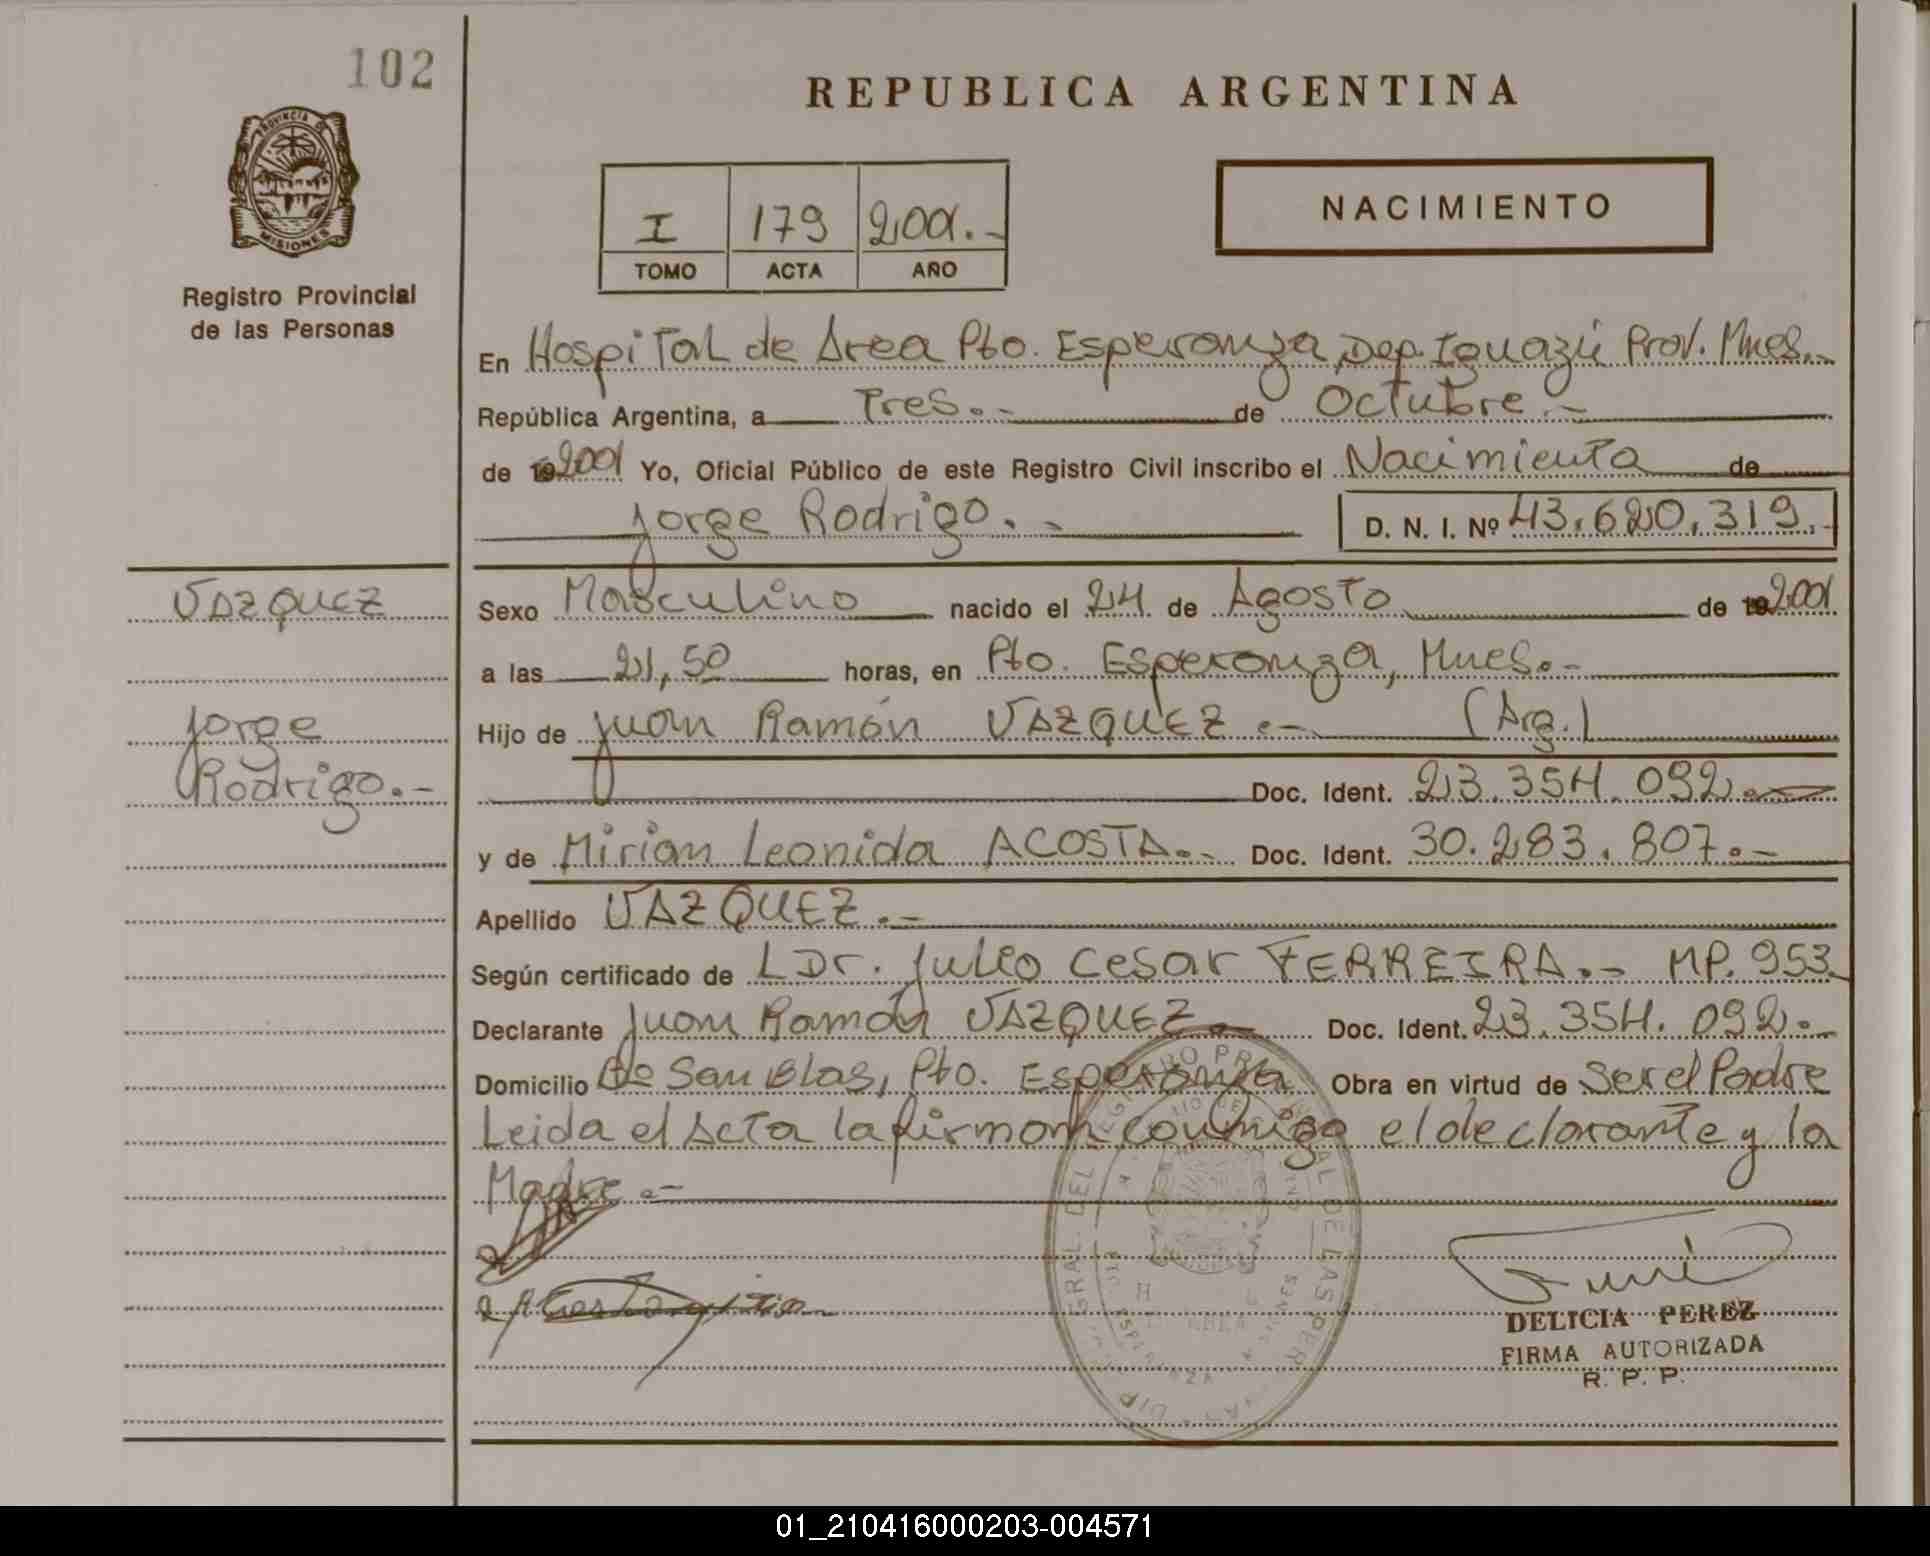 102
REPUBLICA ARGENTINA
PROVINCIA DE
MISIONES
Registro Provincial
de las Personas
I 179 2001.-
TOMO ACTA AÑO
NACIMIENTO
En Hospital de Area Pto. Esperanza, Dep. Iguazú Prov. Mnes.-
República Argentina, a Tres.- de Octubre.-
de 2001 Yo, Oficial Público de este Registro Civil inscribo el Nacimiento de
Jorge Rodrigo.- D. N. I. Nº 43.620.319.-
VAZQUEZ
Sexo Masculino nacido el 24 de Agosto de 2001
a las 21,50 horas, en Pto. Esperanza, Mnes.-
Jorge
Rodrigo.-
Hijo de Juan Ramón VAZQUEZ.- (Arg.)
Doc. Ident. 23.354.092.-
y de Mirian Leonida ACOSTA.- Doc. Ident. 30.283.807.-
Apellido VAZQUEZ.-
Según certificado de L Dr. Julio Cesar FERREIRA.- MP. 953
Declarante Juan Ramón VAZQUEZ.- Doc. Ident. 23.354.092.-
Domicilio Bº San Blas, Pto. Esperanza Obra en virtud de Ser el Padre
Leida el Acta la firman conmigo el declarante y la
Madre.-
DELICIA PEREZ
FIRMA AUTORIZADA
R. P. P.
01_210416000203-004571